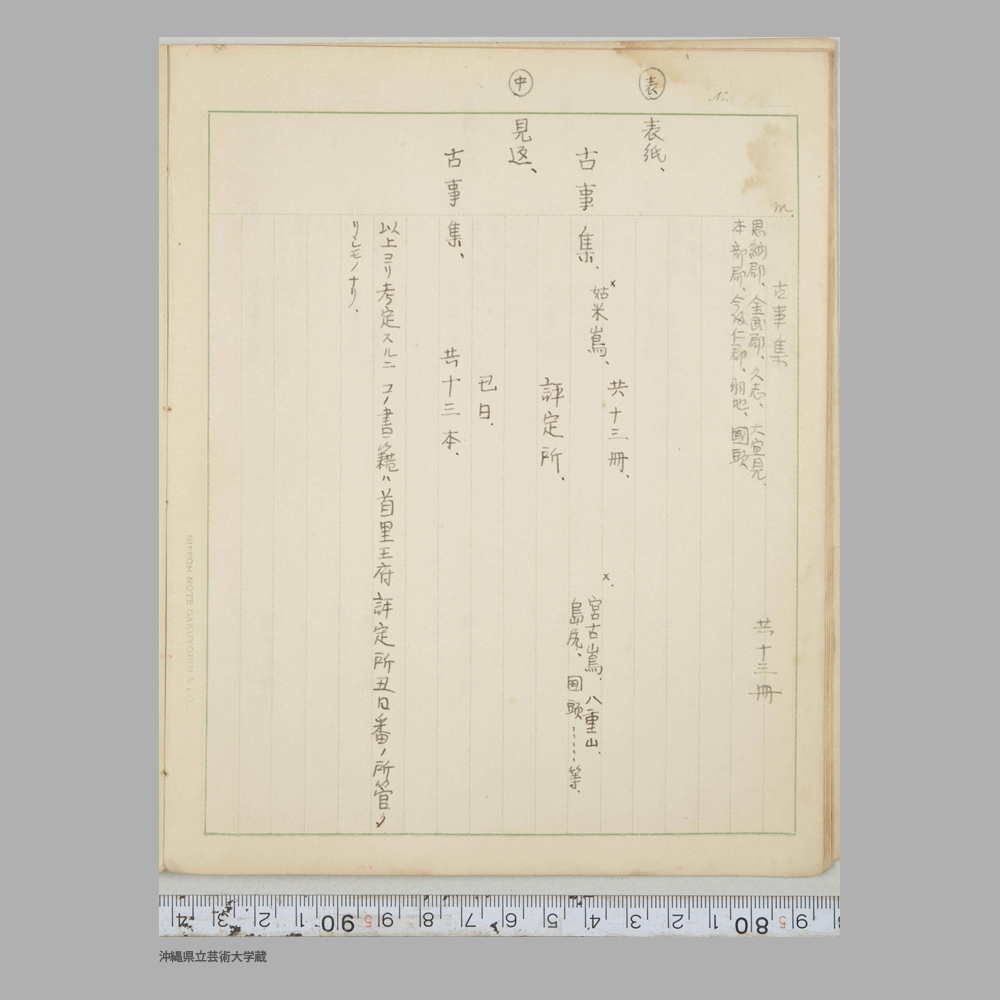 No.
m.
古事集　共十三冊
恩納郡、金武郡、久志、大宜見、
本部郡、今帰仁郡、羽地、國頭
㊟表
表紙、
共十三冊、
古事集、
x姑米嶌、
x.宮古嶌、八重山、
島尻、国頭……等、
評定所、
㊥
見返、
巳日、
古事集、　共十三本、
以上ヨリ考定スルニコノ書籍ハ首里王府評定所丑日番ノ所管ノ
リシモノナリ、
NIPPON NOTE GAKUYOHIN & CO.
4 3 2 1 90 9 8 7 6 5 4 3 2 1 80 9
沖縄県立芸術大学蔵